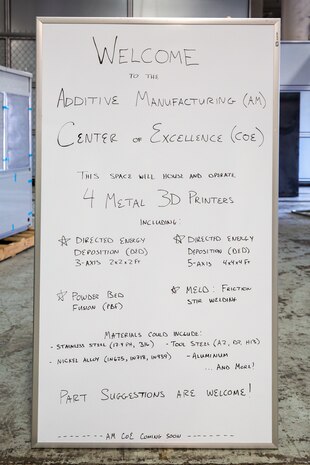 WELCOME
TO THE
ADDITIVE MANUFACTURING (AM)
CENTER OF EXCELLENCE (COE)
THIS SPACE WILL HOUSE AND OPERATE
4 METAL 3D PRINTERS
INCLUDING:
☆ DIRECTED ENERGY
DEPOSITION (DED)
3-AXIS 2x2x2 FT
☆ DIRECTED ENERGY
DEPOSITION (DED)
5-AXIS 4x4x4 FT
☆ POWDER BED
FUSION (PBF)
☆ MELD: FRICTION
STIR WELDING
MATERIALS COULD INCLUDE:
- STAINLESS STEEL (17-4 PH, 316) - TOOL STEEL (A2, D2, H13)
- NICKEL ALLOY (IN625, IN718, IN939) - ALUMINUM
... AND MORE!
PART SUGGESTIONS ARE WELCOME!
-------- AM COE COMING SOON --------